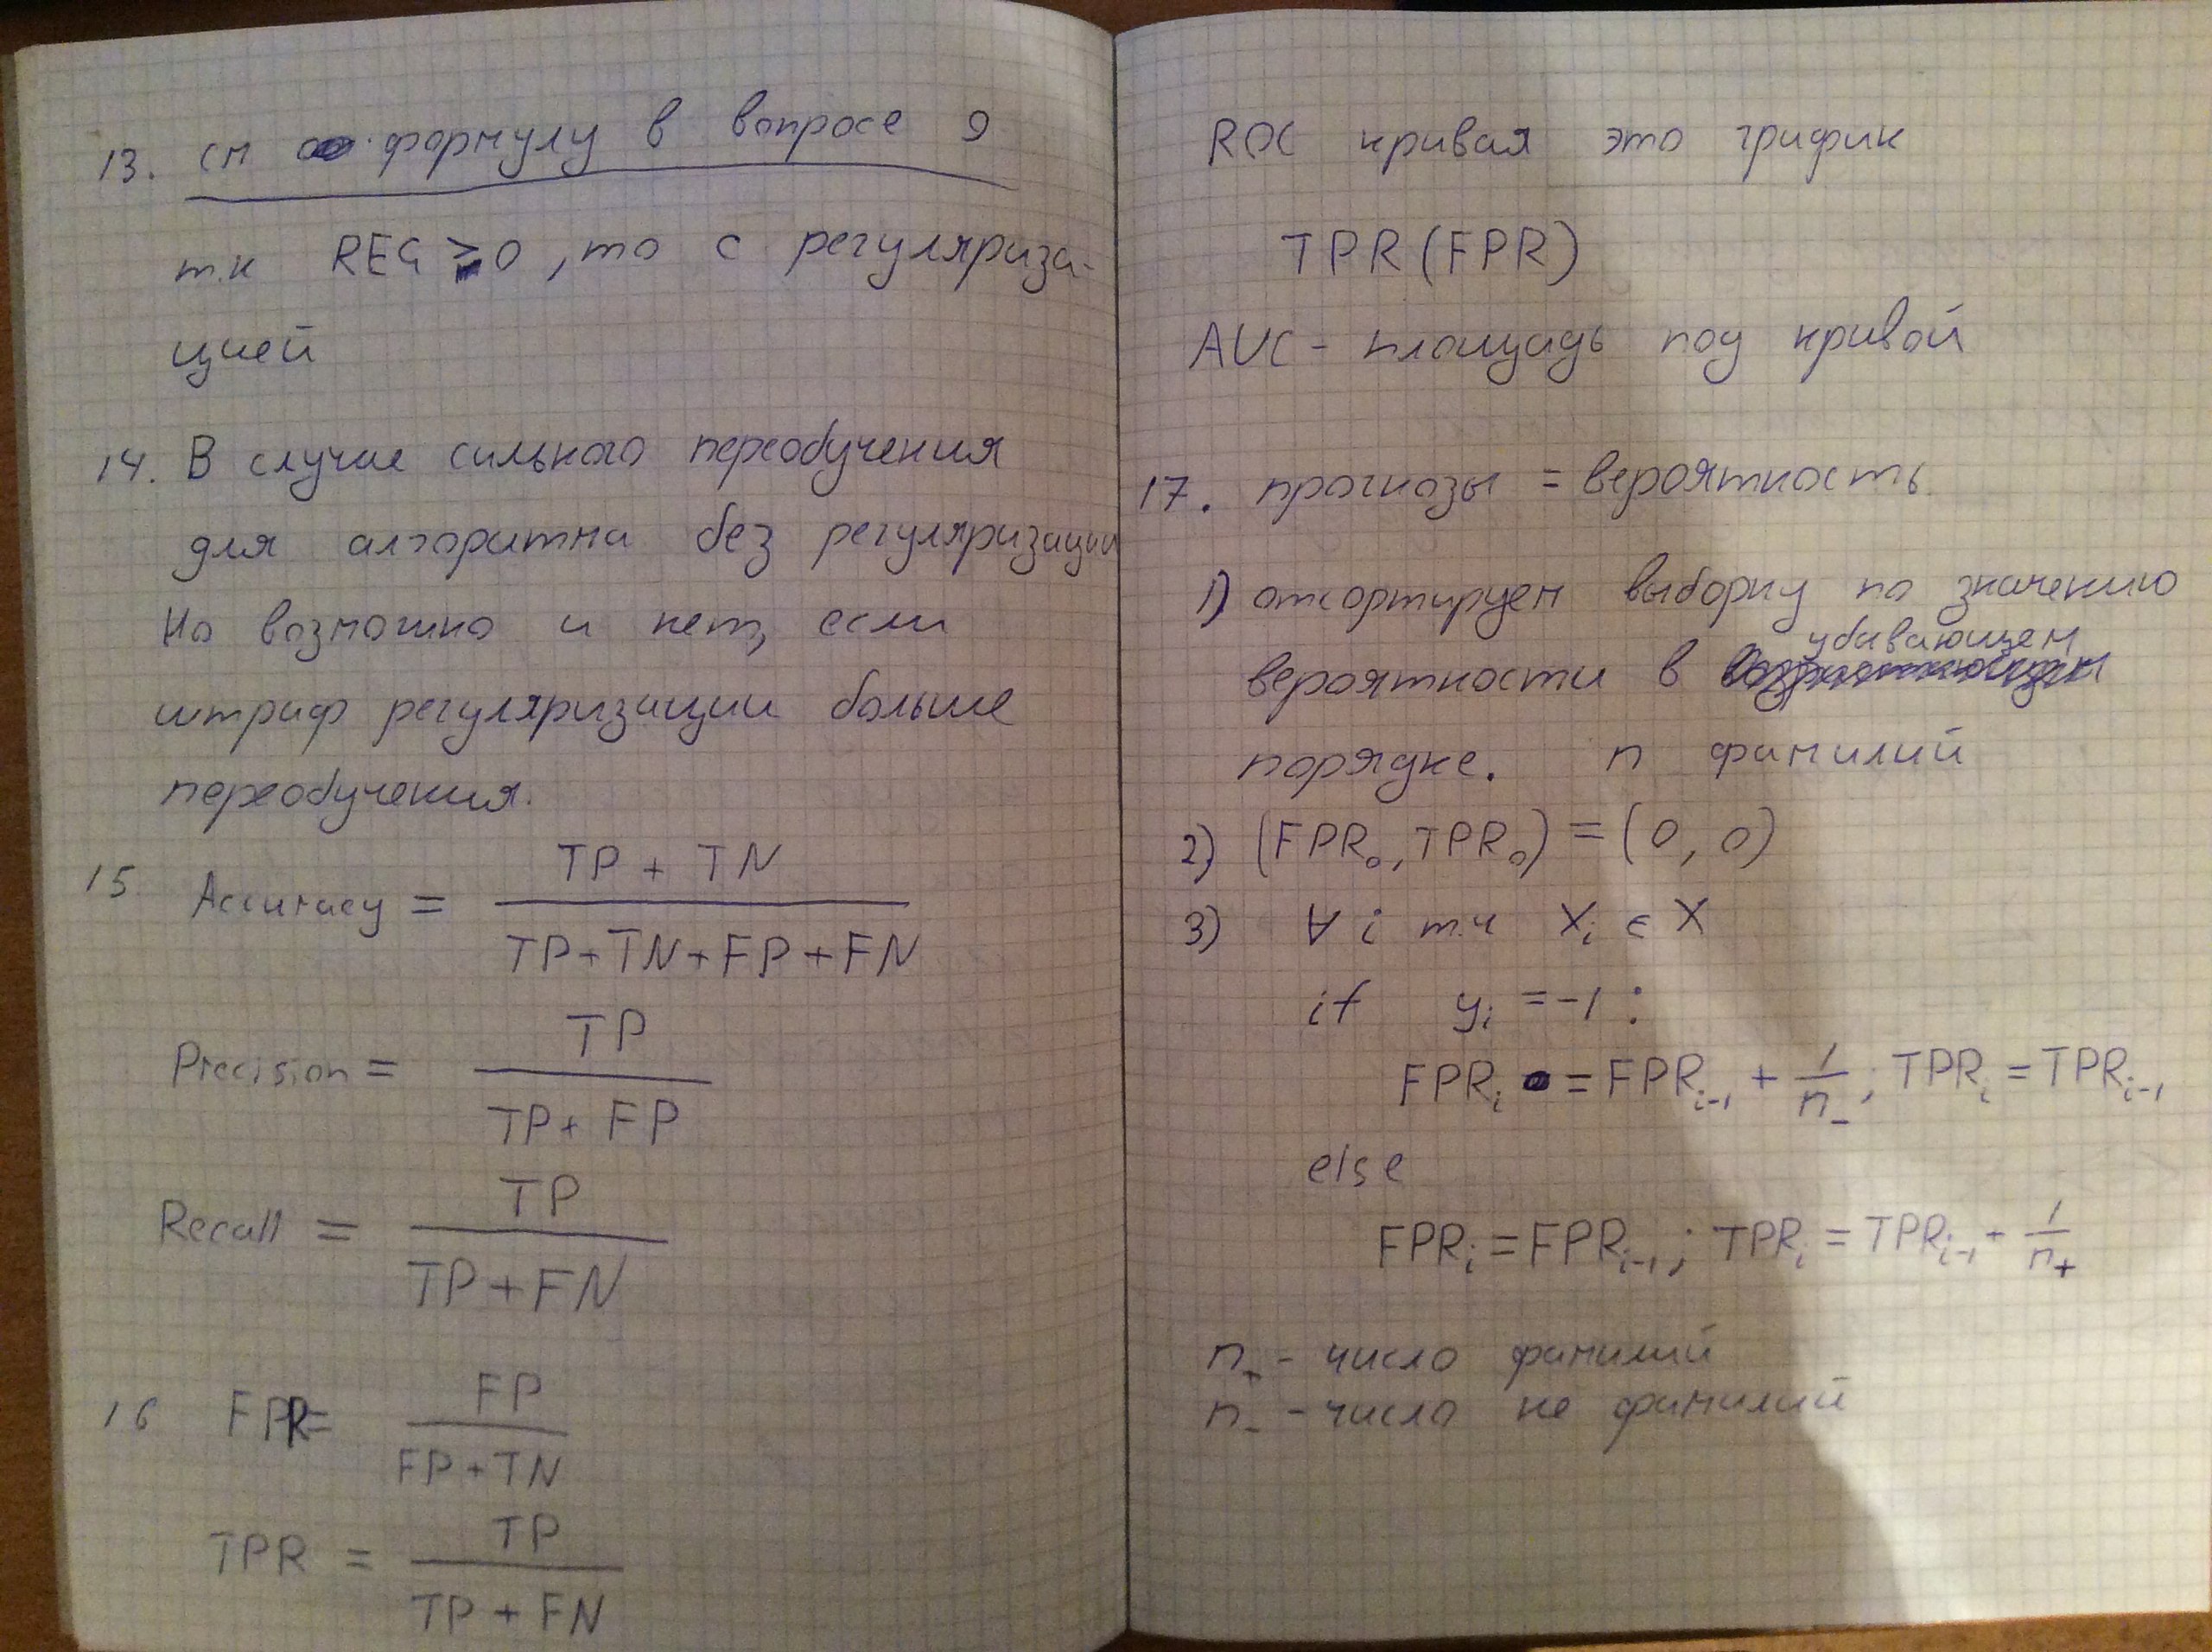 13. см формулу в вопросе 9
т.к REG ≥ 0, то с регуляриза-
цией
14. В случае сильного переобучения
для алгоритма без регуляризации
Но возможно и нет, если
штраф регуляризации больше
переобучения.
15 Accuracy = (TP + TN) / (TP+TN+FP+FN)
Precision = TP / (TP+FP)
Recall = TP / (TP+FN)
16 FPR = FP / (FP+TN)
TPR = TP / (TP+FN)
ROC кривая это график
TPR(FPR)
AUC - площадь под кривой
17. прогнозы = вероятность
1) отсортируем выборку по значению
вероятности в убывающем
порядке. n фамилий
2) (FPR₀, TPR₀) = (0, 0)
3) ∀ i т.ч Xᵢ ∈ X
if yᵢ = -1 :
FPRᵢ = FPRᵢ₋₁ + 1/n₋; TPRᵢ = TPRᵢ₋₁
else
FPRᵢ = FPRᵢ₋₁; TPRᵢ = TPRᵢ₋₁ + 1/n₊
n₊ - число фамилий
n₋ - число не фамилий